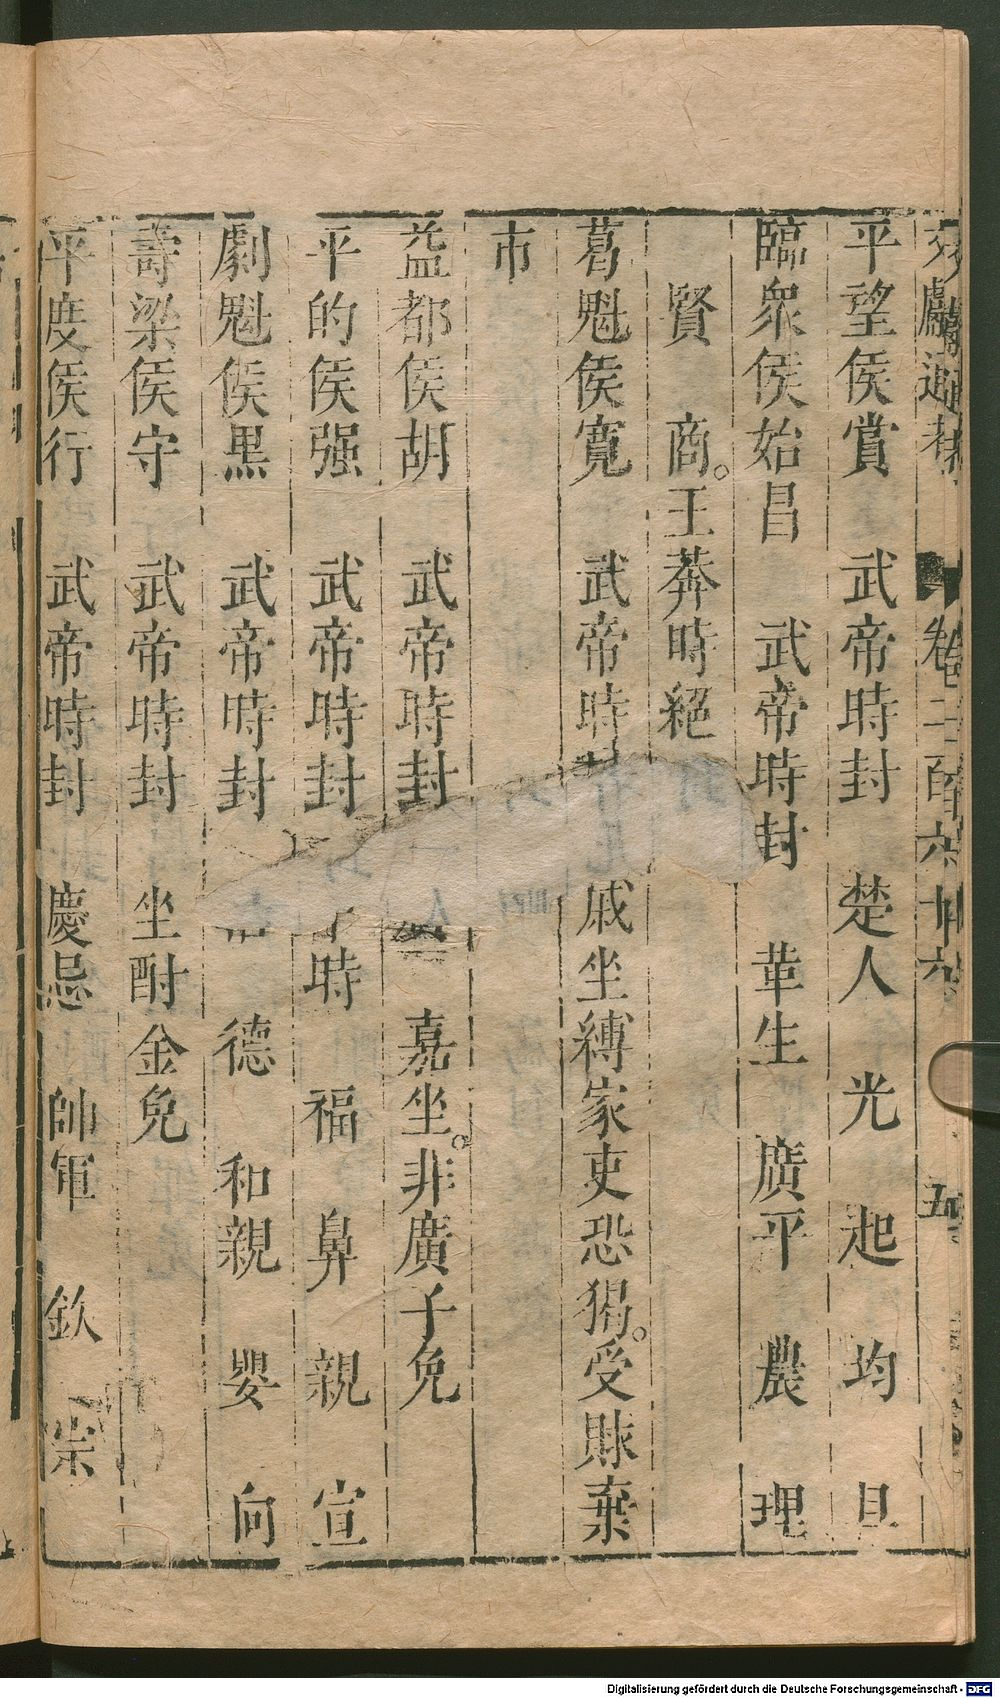 文獻通考 卷二百六十六 五
平望侯賞 武帝時封 楚人 光 起 均 旦
臨衆侯始昌 武帝時封 革生 廣平 農 理
賢 商。王莽時絕
葛魁侯寬 武帝時封 戚坐縛家吏恐猲。受賕棄
市
益都侯胡 武帝時封 嘉坐。非廣子免
平的侯强 武帝時封 時 福 鼻 親 宣
劇魁侯黑 武帝時封 德 和親 嬰 向
壽梁侯守 武帝時封 坐酎金免
平度侯行 武帝時封 慶忌 帥軍 欽 宗
Digitalisierung gefördert durch die Deutsche Forschungsgemeinschaft - DFG